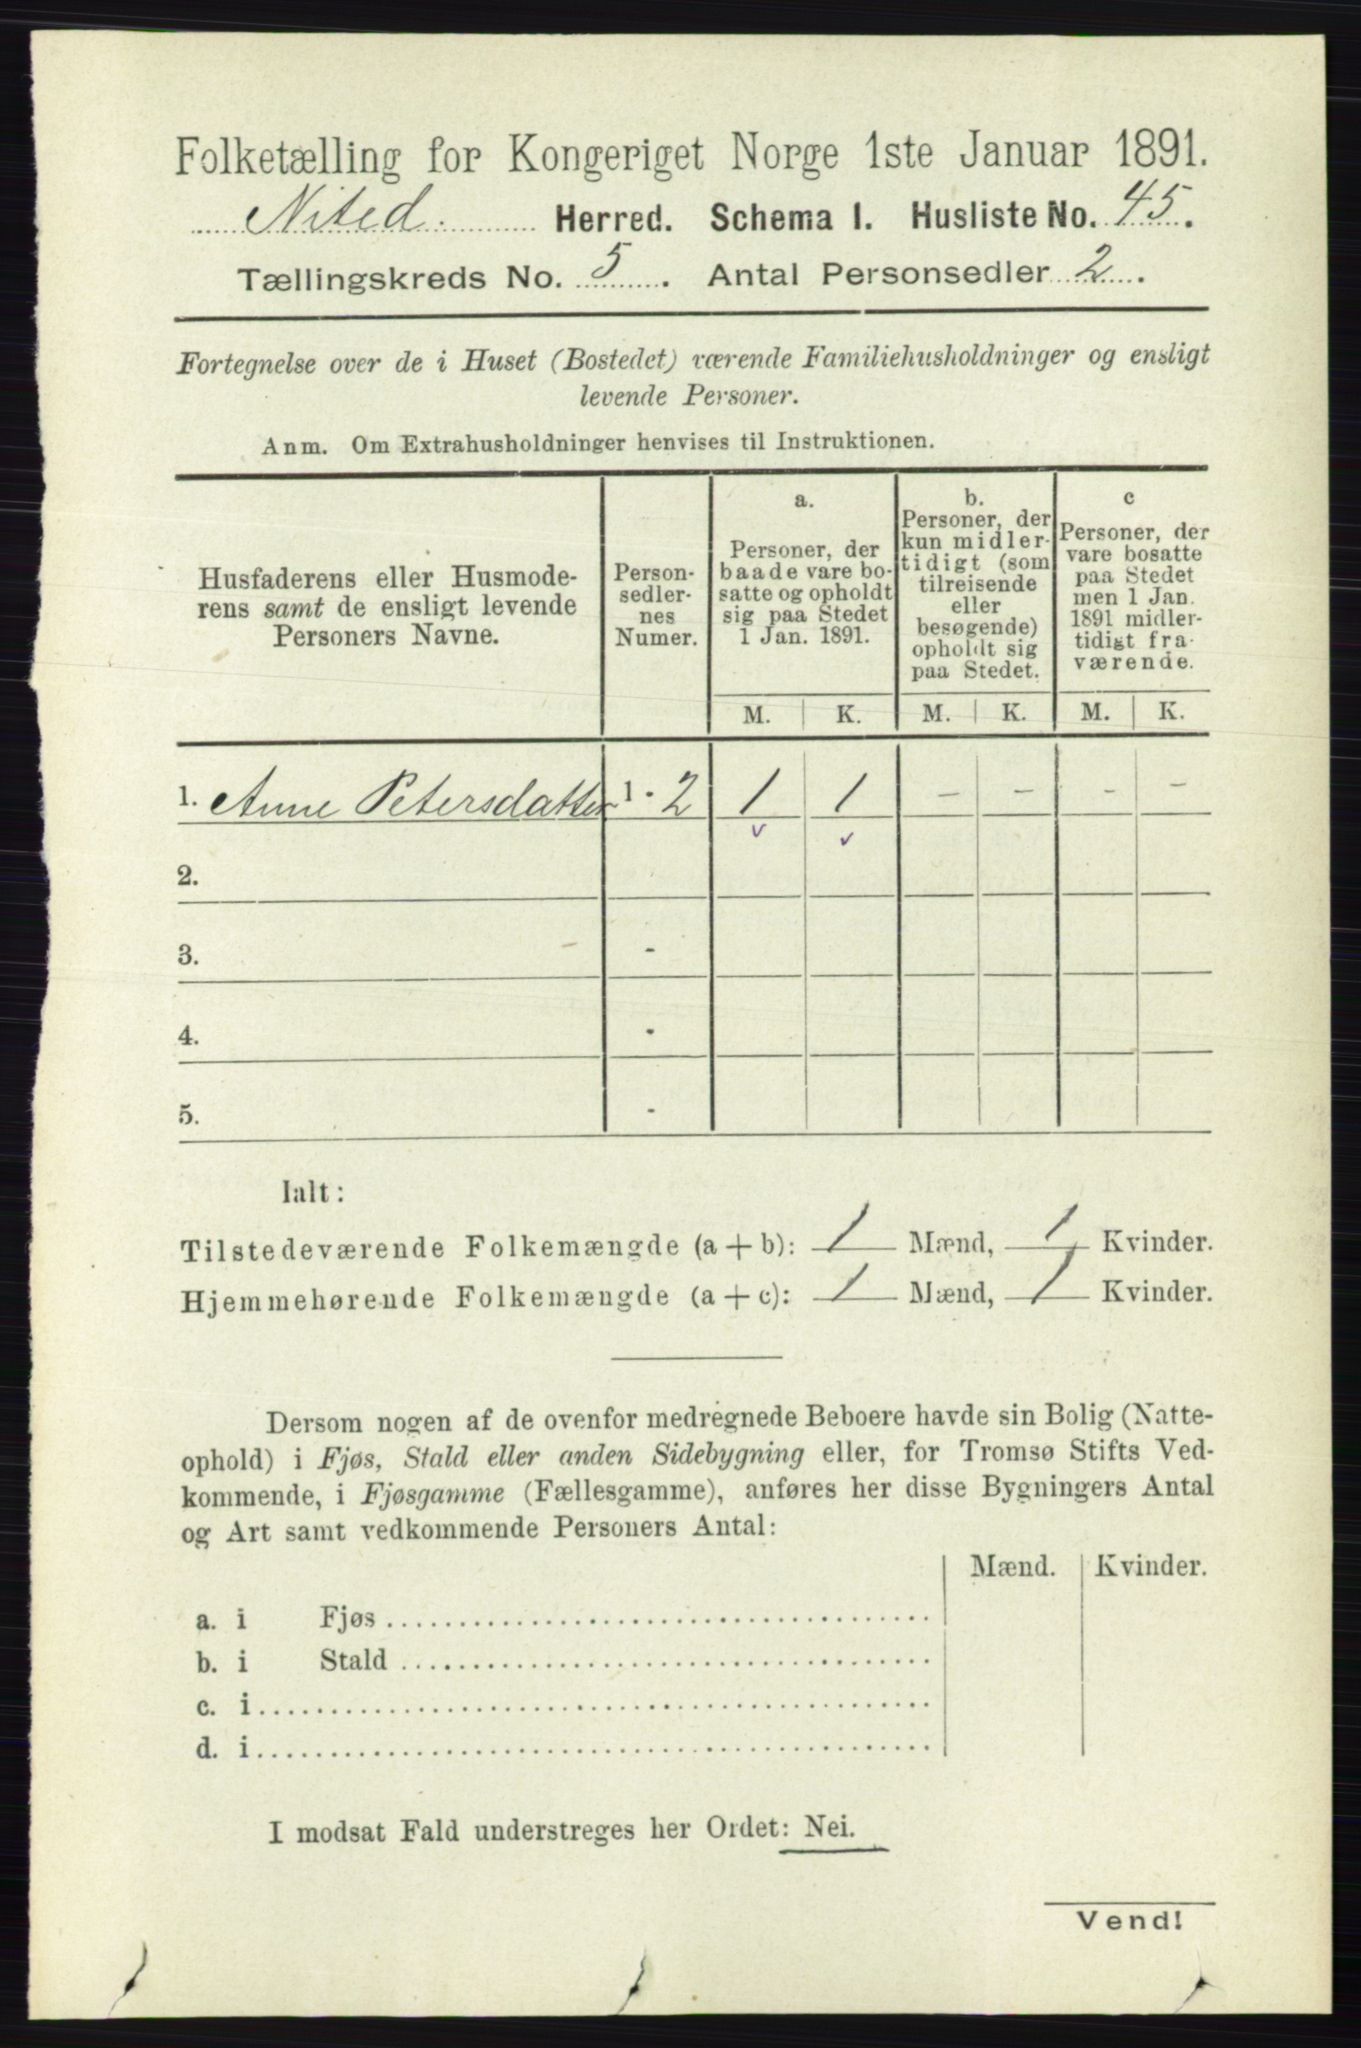 Folketælling for Kongeriget Norge 1ste Januar 1891.
Nited. Herred. Schema I. Husliste No. 45.
Tællingskreds No. 5. Antal Personsedler 2.
Fortegnelse over de i Huset (Bostedet) værende Familiehusholdninger og ensligt
levende Personer.
Anm. Om Extrahusholdninger henvises til Instruktionen.
Husfaderens eller Husmode-
rens samt de ensligt levende
Personers Navne.
Person-
sedler-
nes
Numer.
a.
Personer, der
baade vare bo-
satte og opholdt
sig paa Stedet
1 Jan. 1891.
b.
Personer, der
kun midler-
tidigt (som
tilreisende
eller
besøgende)
opholdt sig
paa Stedet.
c
Personer, der
vare bosatte
paa Stedet
men 1 Jan.
1891 midler-
tidigt fra-
værende.
M. K. M. K. M. K.
1. Anne Petersdatter 1 - 2 1 1 - - - -
2.
3. -
4. -
5. -
Ialt:
Tilstedeværende Folkemængde (a + b): 1 Mænd, 1 Kvinder.
Hjemmehørende Folkemængde (a + c): 1 Mænd, 1 Kvinder.
Dersom nogen af de ovenfor medregnede Beboere havde sin Bolig (Natte-
ophold) i Fjøs, Stald eller anden Sidebygning eller, for Tromsø Stifts Ved-
kommende, i Fjøsgamme (Fællesgamme), anføres her disse Bygningers Antal
og Art samt vedkommende Personers Antal:
Mænd. Kvinder.
a. i Fjøs
b. i Stald
c. i
d. i
I modsat Fald understreges her Ordet: Nei.
Vend!